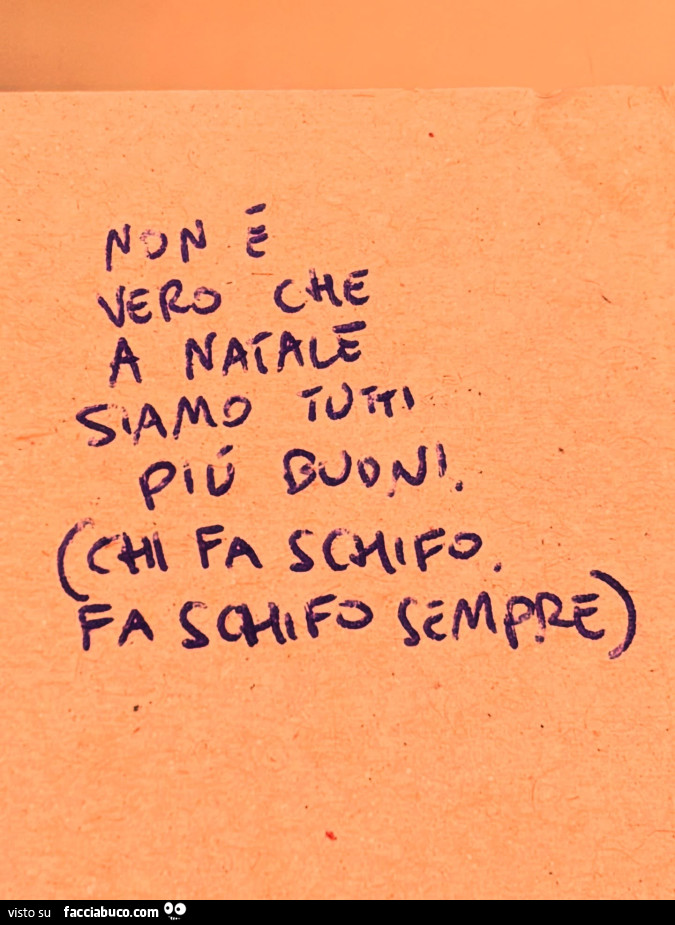 NON È
VERO CHE
A NATALE
SIAMO TUTTI
PIÚ BUONI.
(CHI FA SCHIFO.
FA SCHIFO SEMPRE)
visto su facciabuco.com